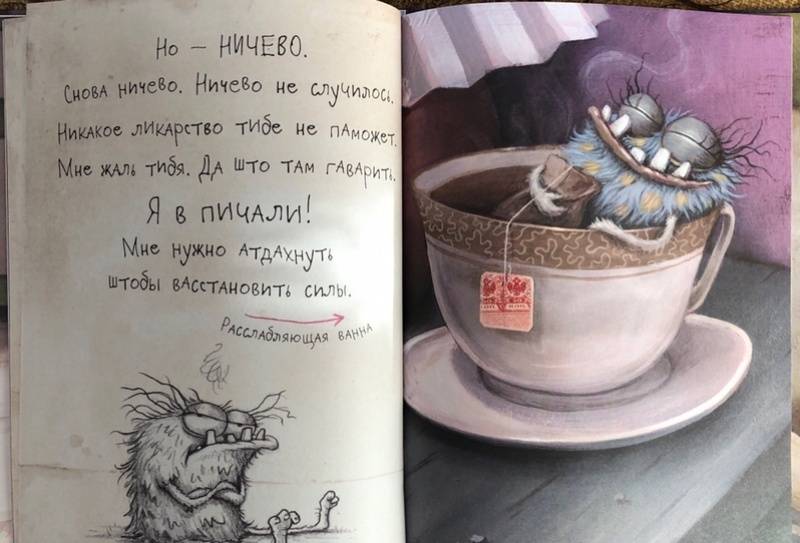 Но – НИЧЕВО.
Снова ничево. Ничево не случилось.
Никакое ликарство тибе не паможет.
Мне жаль тибя. Да што там гаварить.
Я в пичали!
Мне нужно атдахнуть
штобы васстановить силы.
Расслабляющая ванна